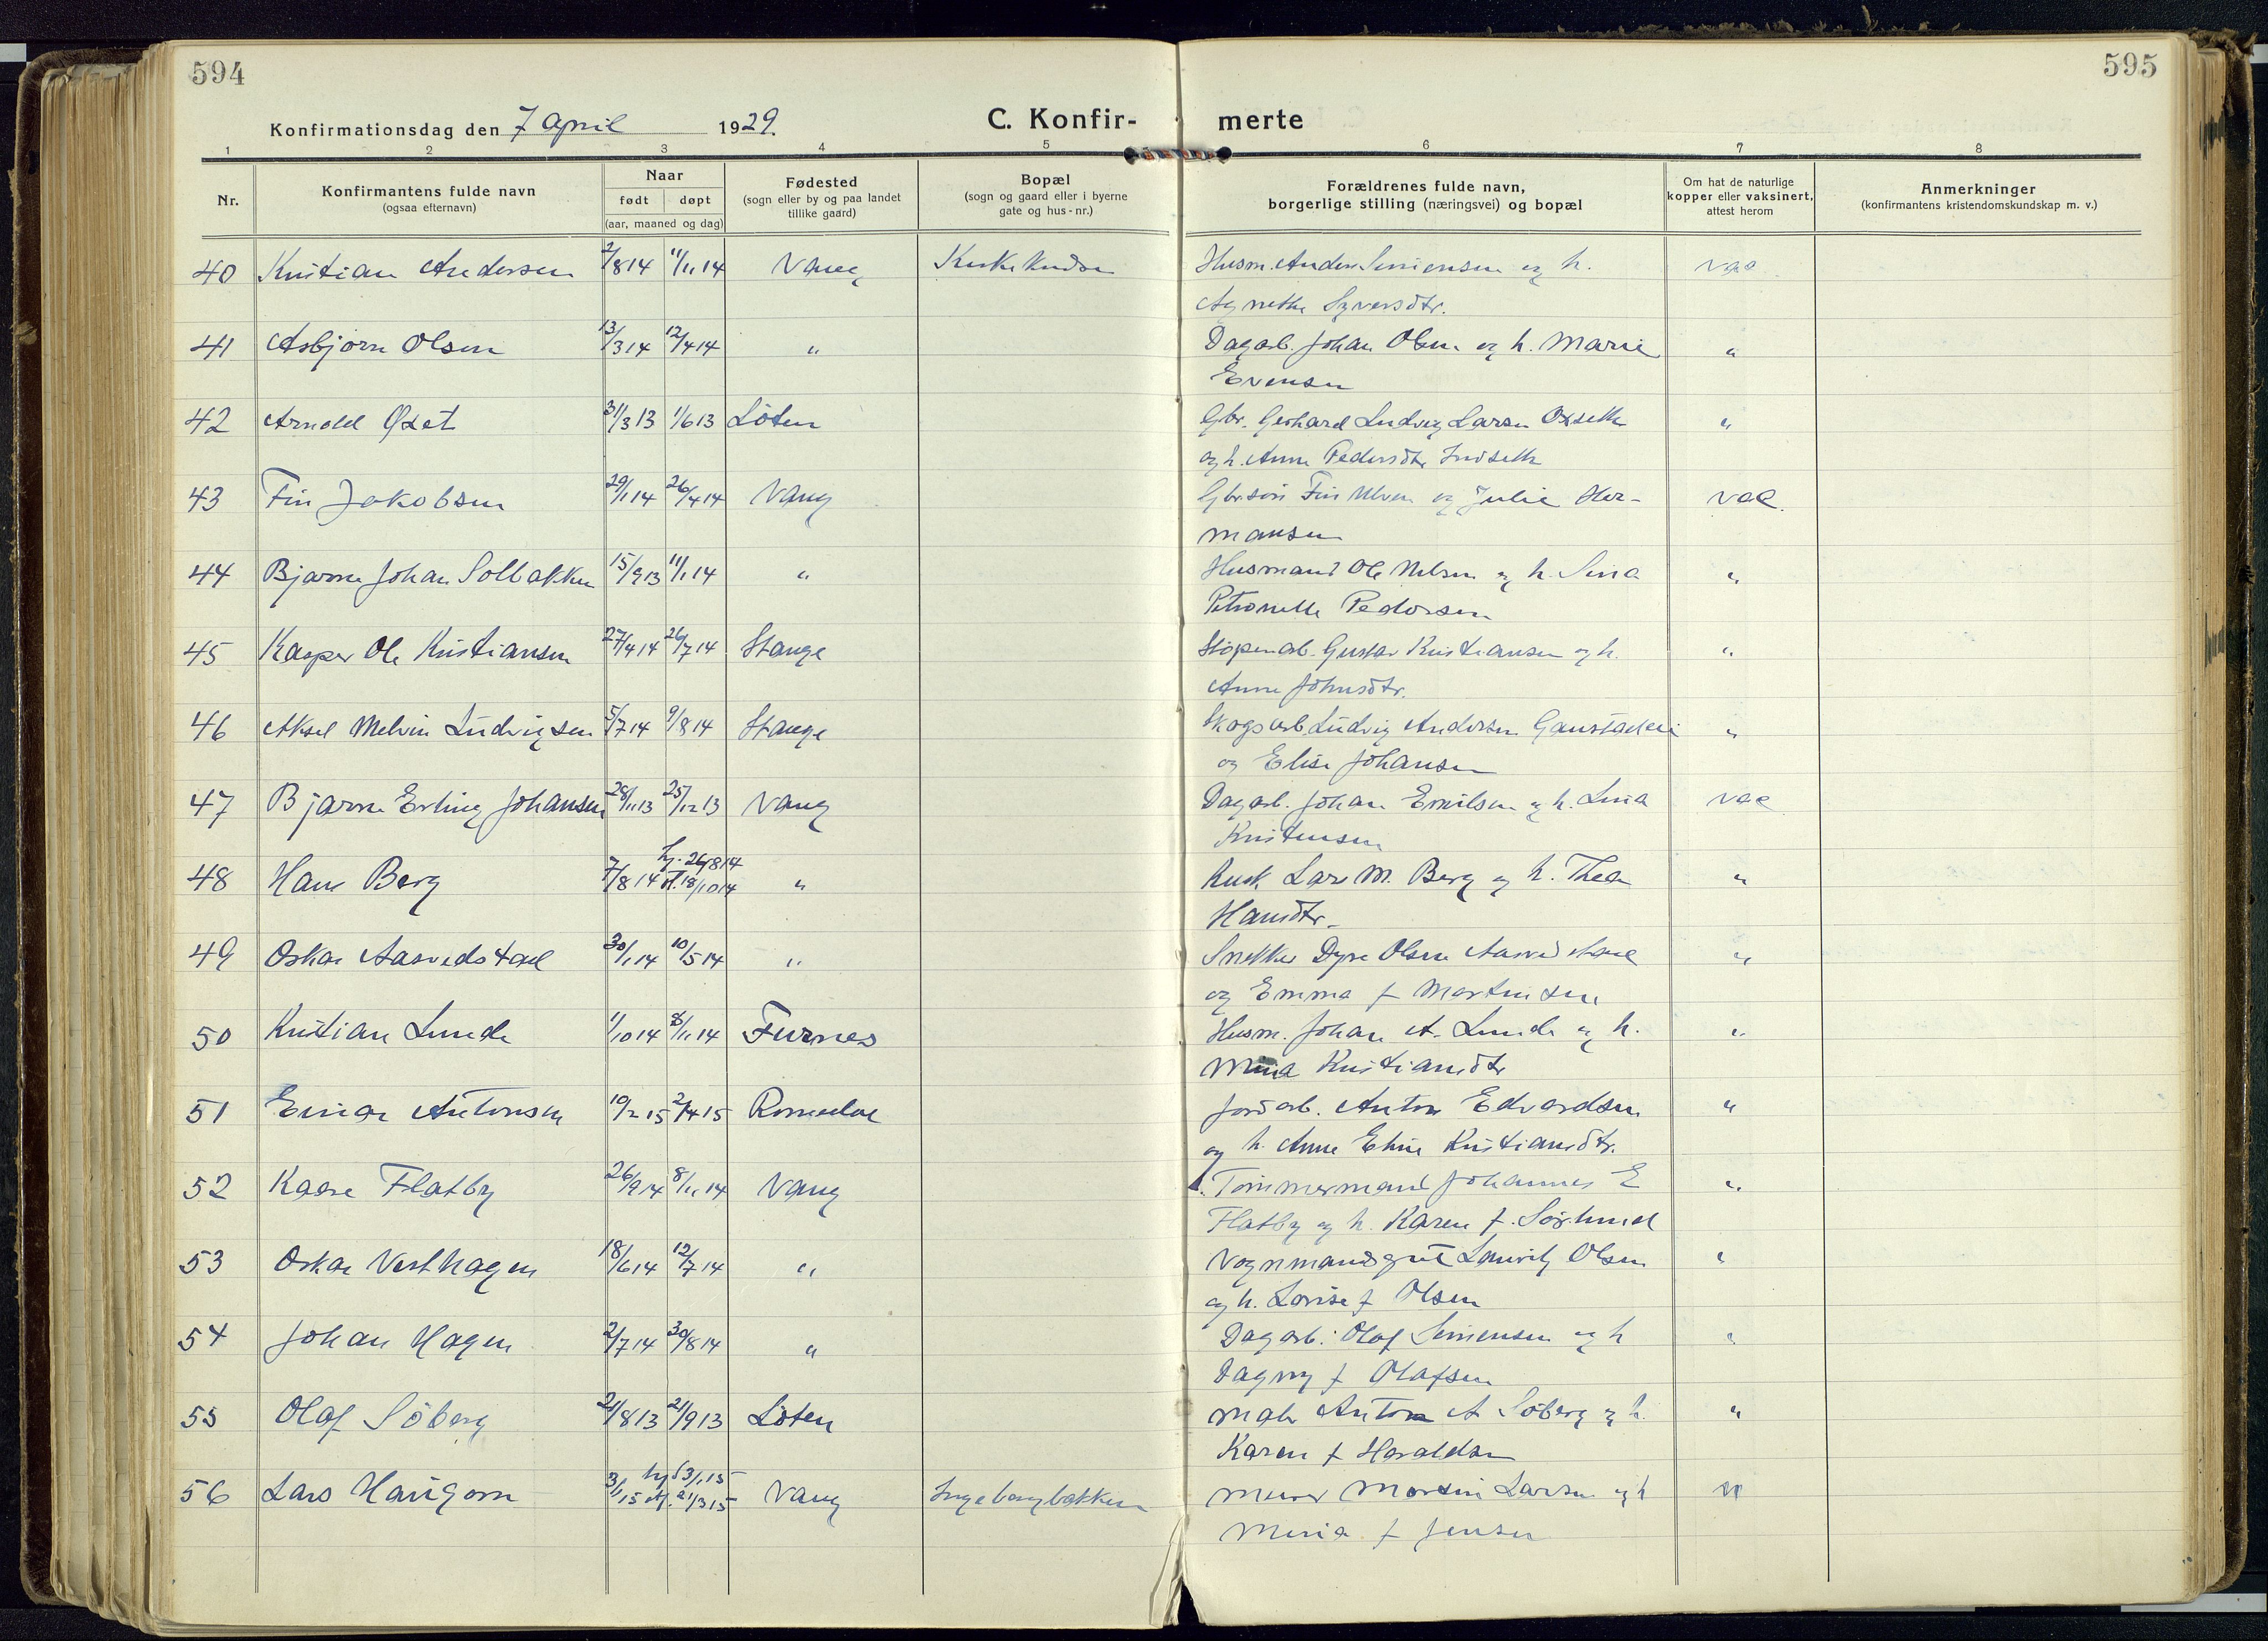 594
595
Konfirmationsdag den 7 April 1929.
C. Konfir- merte
1 2 3 4 5 6 7 8
Nr.
Konfirmantens fulde navn
(ogsaa efternavn)
Naar
født døpt
(aar, maaned og dag)
Fødested
(sogn eller by og paa landet
tillike gaard)
Bopæl
(sogn og gaard eller i byerne
gate og hus-nr.)
Forældrenes fulde navn,
borgerlige stilling (næringsvei) og bopæl
Om hat de naturlige
kopper eller vaksinert,
attest herom
Anmerkninger
(konfirmantens kristendomskundskap m. v.)
40 Kristian Andersen 2/8 14 11/11 14 Vang Husm. Anders Simensen og h. vac
Agnethe Syversdtr.
41 Asbjörn Olsen 13/3 14 12/4 14 " Dagarb. Johan Olsen og h. Marie "
Evensen
42 Arnold Oxset 31/3 13 1/6 13 Löten Gbr. Gerhard Ludvig Larsen Oxseth "
og h. Anne Pedersdtr Indseth
43 Fin Jakobsen 29/1 14 26/4 14 Vang Gbr.sön Fin Ulven og Julie Her- vac.
mansen
44 Bjarne Johan Solbakken 15/9 13 11/1 14 " Husmand Ole Nilsen og h. Sina "
Petronelle Pedersen
45 Kasper Ole Kristiansen 27/4 14 26/7 14 Stange Gustav Kristiansen og h. "
Anne Johnsdtr.
46 Aksel Melvin Ludvigsen 5/7 14 9/8 14 Stange Skogsarb. Ludvig Andersen "
og Elise Johansen
47 Bjarne Erling Johansen 28/11 13 25/12 13 Vang Dagarb. Johan Emilsen og h. Lina vac
Kristensen
48 Hans Berg 7/8 14 hj. 26/8 14 " Kusk Lars M. Berg og h. Thea "
st. 18/10 14
Hansdtr.
49 Oskar Aasvedstad 30/1 14 10/5 14 " Snekker Dyre Olsen Aasvedstad "
og Emma f Martinsen
50 Kristian Lunde 1/10 14 8/11 14 Furnes Husm. Johan A. Lunde og h. "
Mina Kristiansdtr
51 Einar Antonsen 10/2 15 2/4 15 Romedal Jordarb. Anton Edvardsen "
og h. Anne Eline Kristiansdtr.
52 Kaare Flatby 26/9 14 8/11 14 Vang Tömmermand Johannes E "
Flatby og h. Karen f. Sörlund
53 Oskar Vesthagen 18/6 14 12/7 14 " Vognmandsgut Lauritz Olsen "
og h. Lovise f Olsen
54 Johan Hagen 2/7 14 30/8 14 " Dagarb. Olaf Simensen og h "
Dagny f Olafsen
55 Olaf Söberg 2/8 13 21/9 13 Löten Maler Anton A Söberg og h. "
Karen f Haraldsen
56 Lars Haugom 3/1 15 hj 3/1 15 Vang Ingeborgbakken Murer Martin Larsen og h "
st. 21/3 15
Mina f Jensen